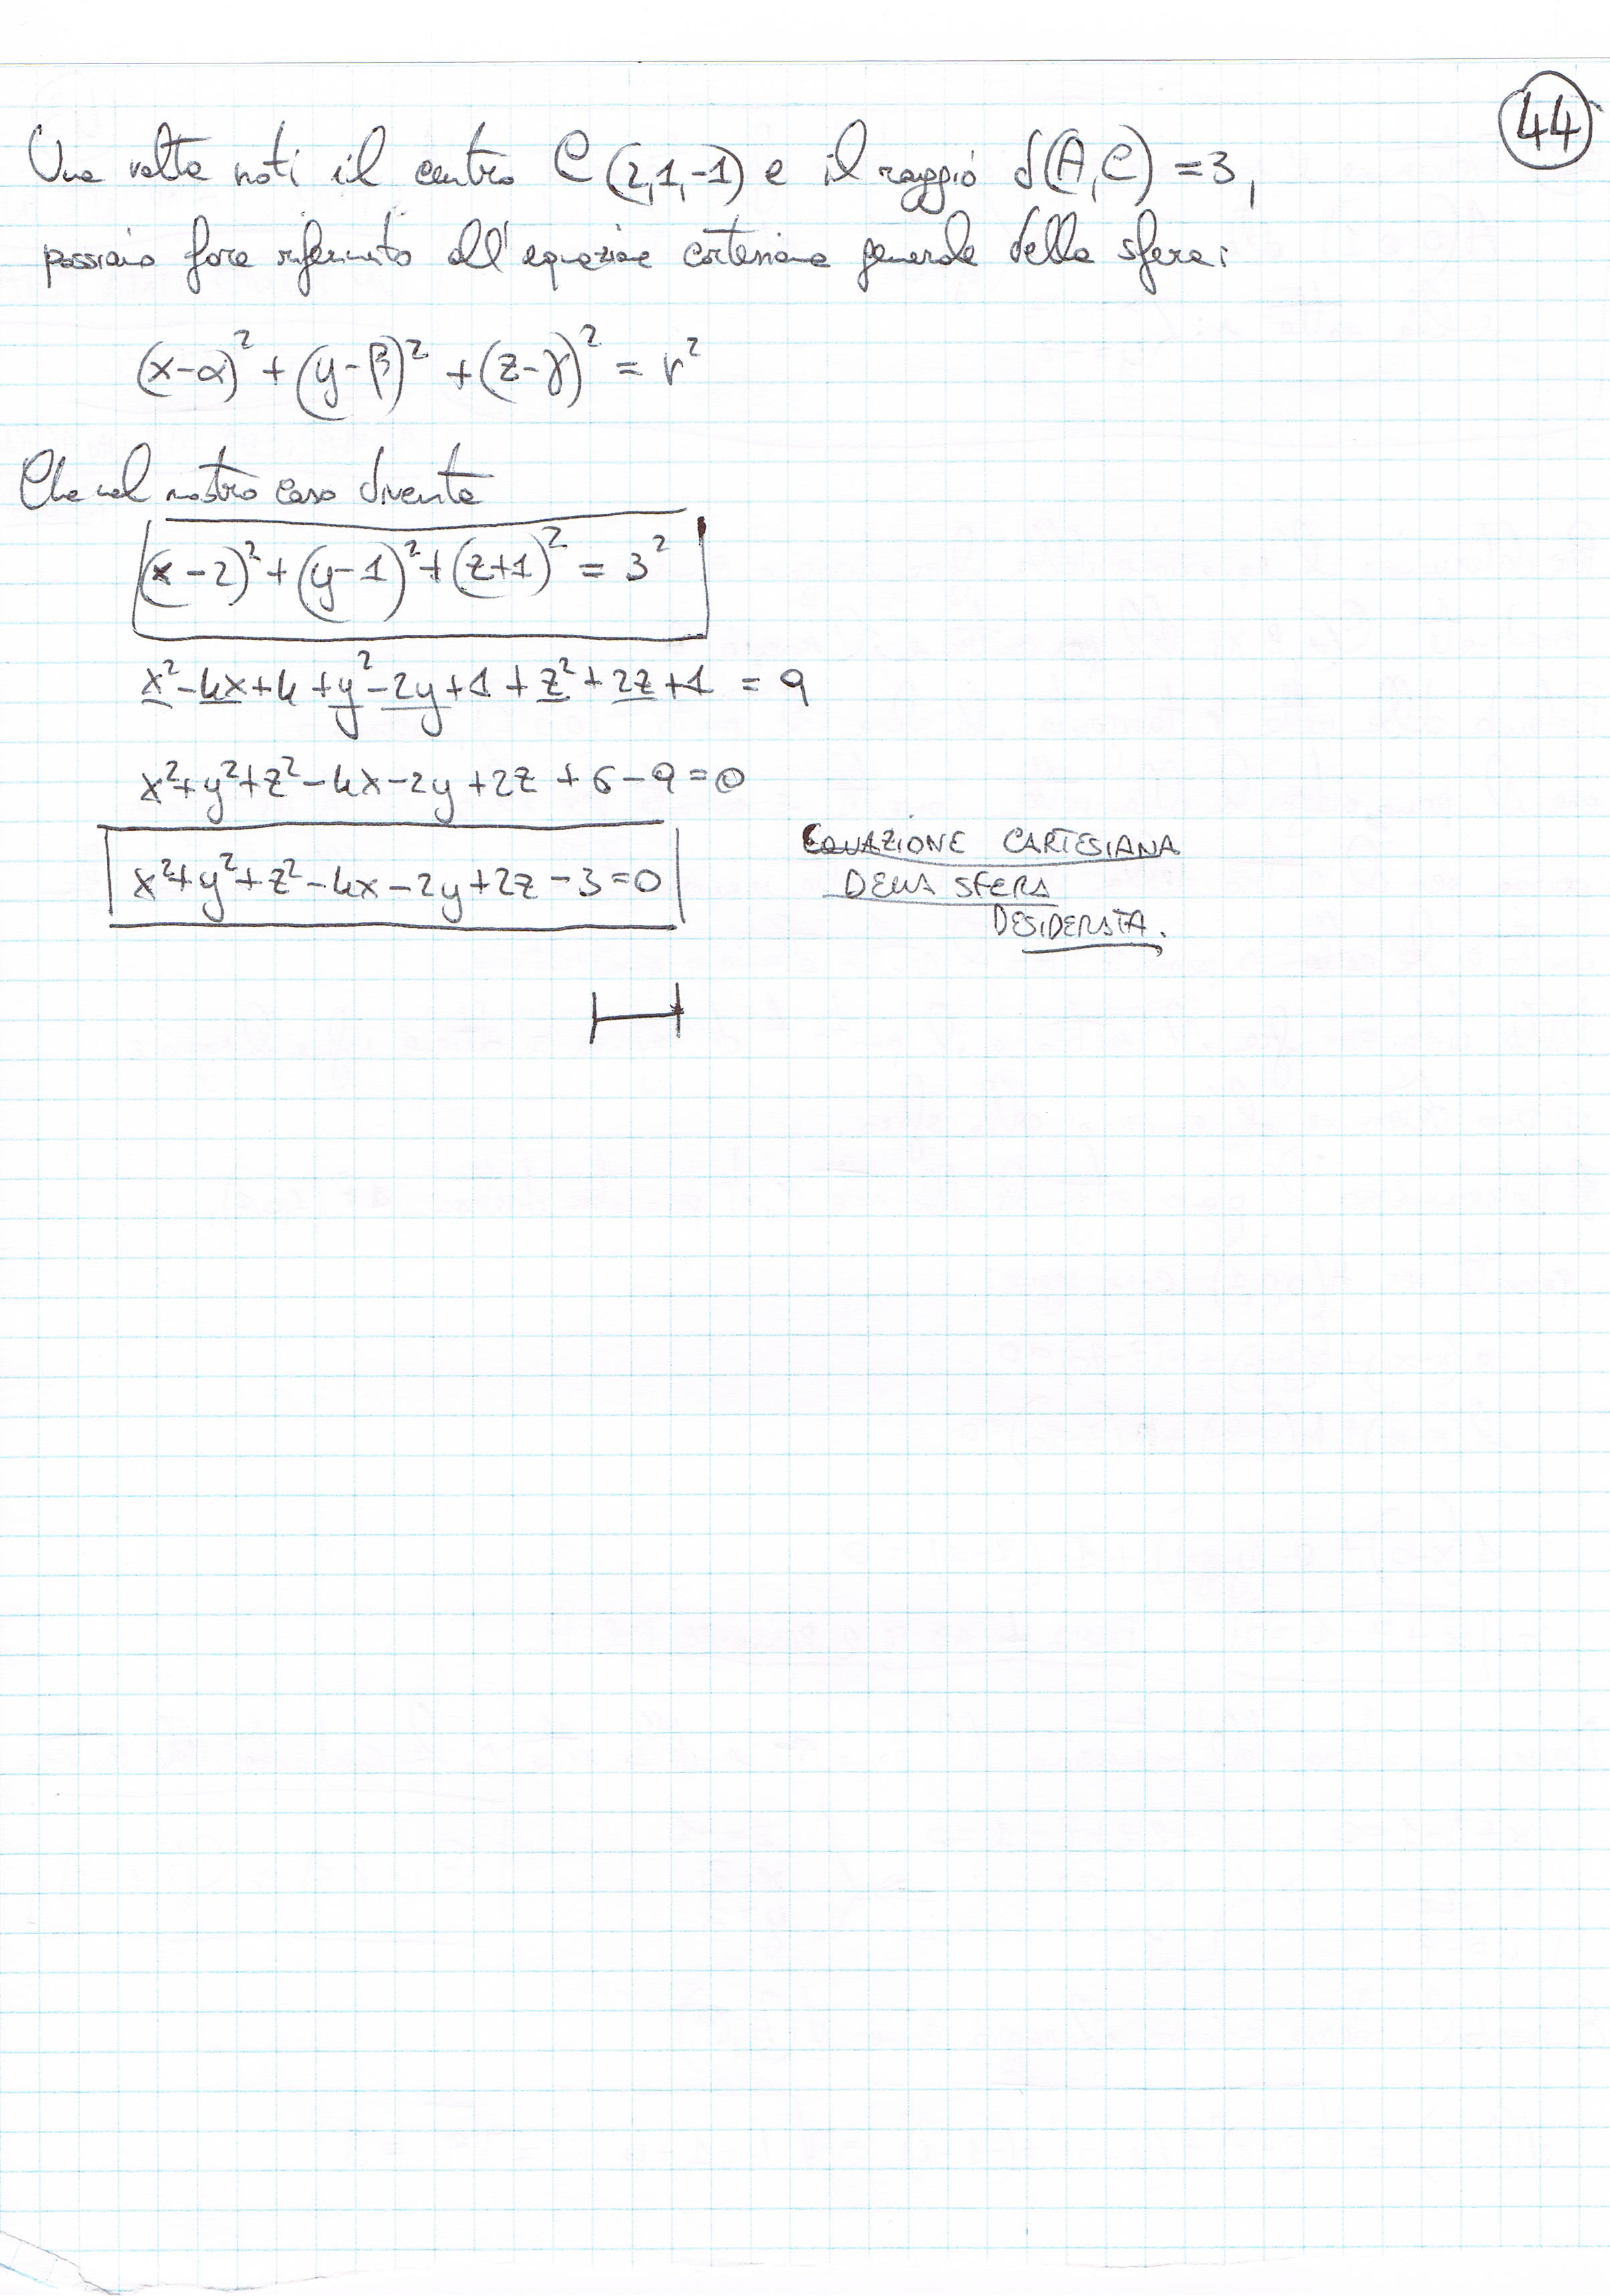 44
Una volta noti il centro C(2,1,-1) e il raggio d(A,C) = 3,
possiamo fare riferimento all'equazione cartesiana generale della sfera:
(x-α)² + (y-β)² + (z-γ)² = r²
Che nel nostro caso diventa
(x-2)² + (y-1)² + (z+1)² = 3²
x²-4x+4+y²-2y+1+z²+2z+1 = 9
x²+y²+z²-4x-2y+2z+6-9=0
x²+y²+z²-4x-2y+2z-3=0
EQUAZIONE CARTESIANA
DELLA SFERA
DESIDERATA.